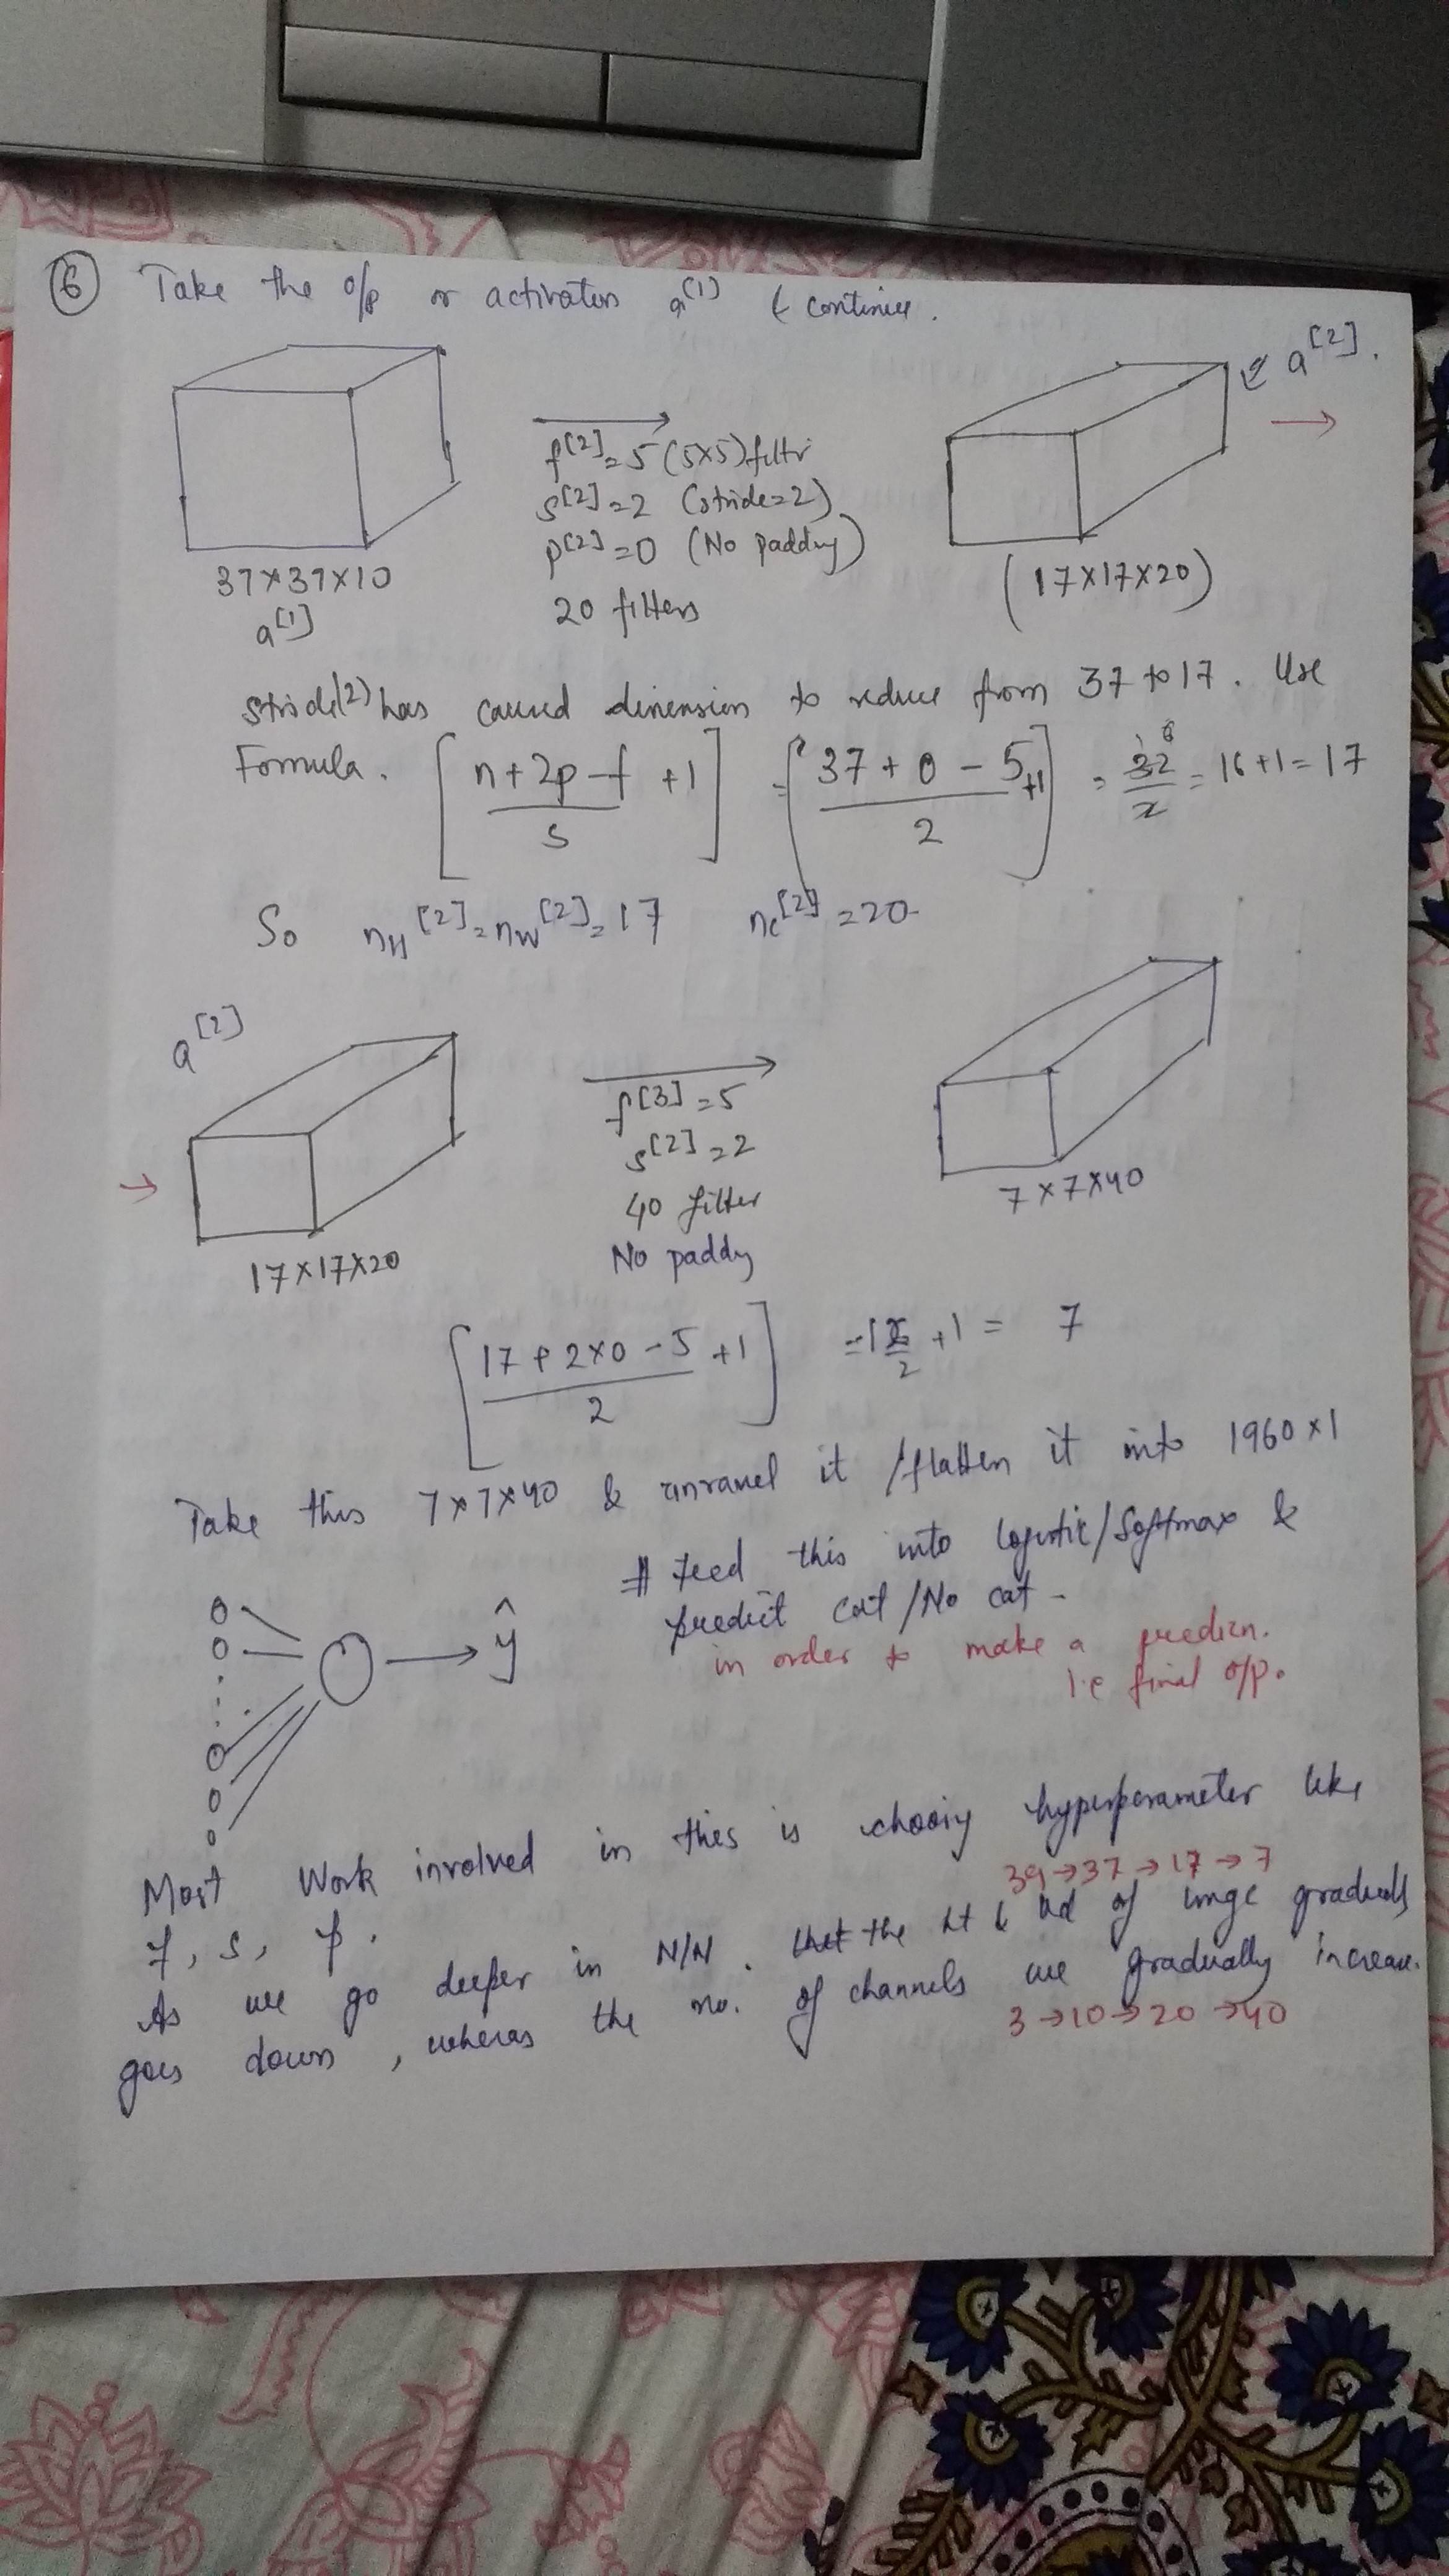 6 Take the o/p or activation a[1] & continue.
a[2].
f[2]=5 (5x5) filtr
s[2]=2 (stride=2)
p[2]=0 (No padding)
37x37x10
20 filters
(17x17x20)
a[1]
stride(2) has caused dimension to reduce from 37 to 17. Use
Formula. [(n+2p-f)/s +1] = [(37+0-5)/2 +1] = 32/2 = 16+1=17
So nH[2]=nW[2]=17 nc[2]=20
a[2]
f[3]=5
s[2]=2
40 filter
No paddg
17x17x20
7x7x40
[(17+2x0-5)/2 +1] = 12/2 +1 = 7
Take this 7x7x40 & unravel it /flatten it into 1960x1
# Feed this into logistic/Softmax &
predict cat/No cat -
ŷ
in order to make a predicn.
i.e final o/p.
Most work involved in this is choosing hyperparameter like
f, s, p.
39→37→17→7
As we go deeper in N/N. that the ht & wd of image gradually
goes down, wheras the no. of channels are gradually increase.
3→10→20→40